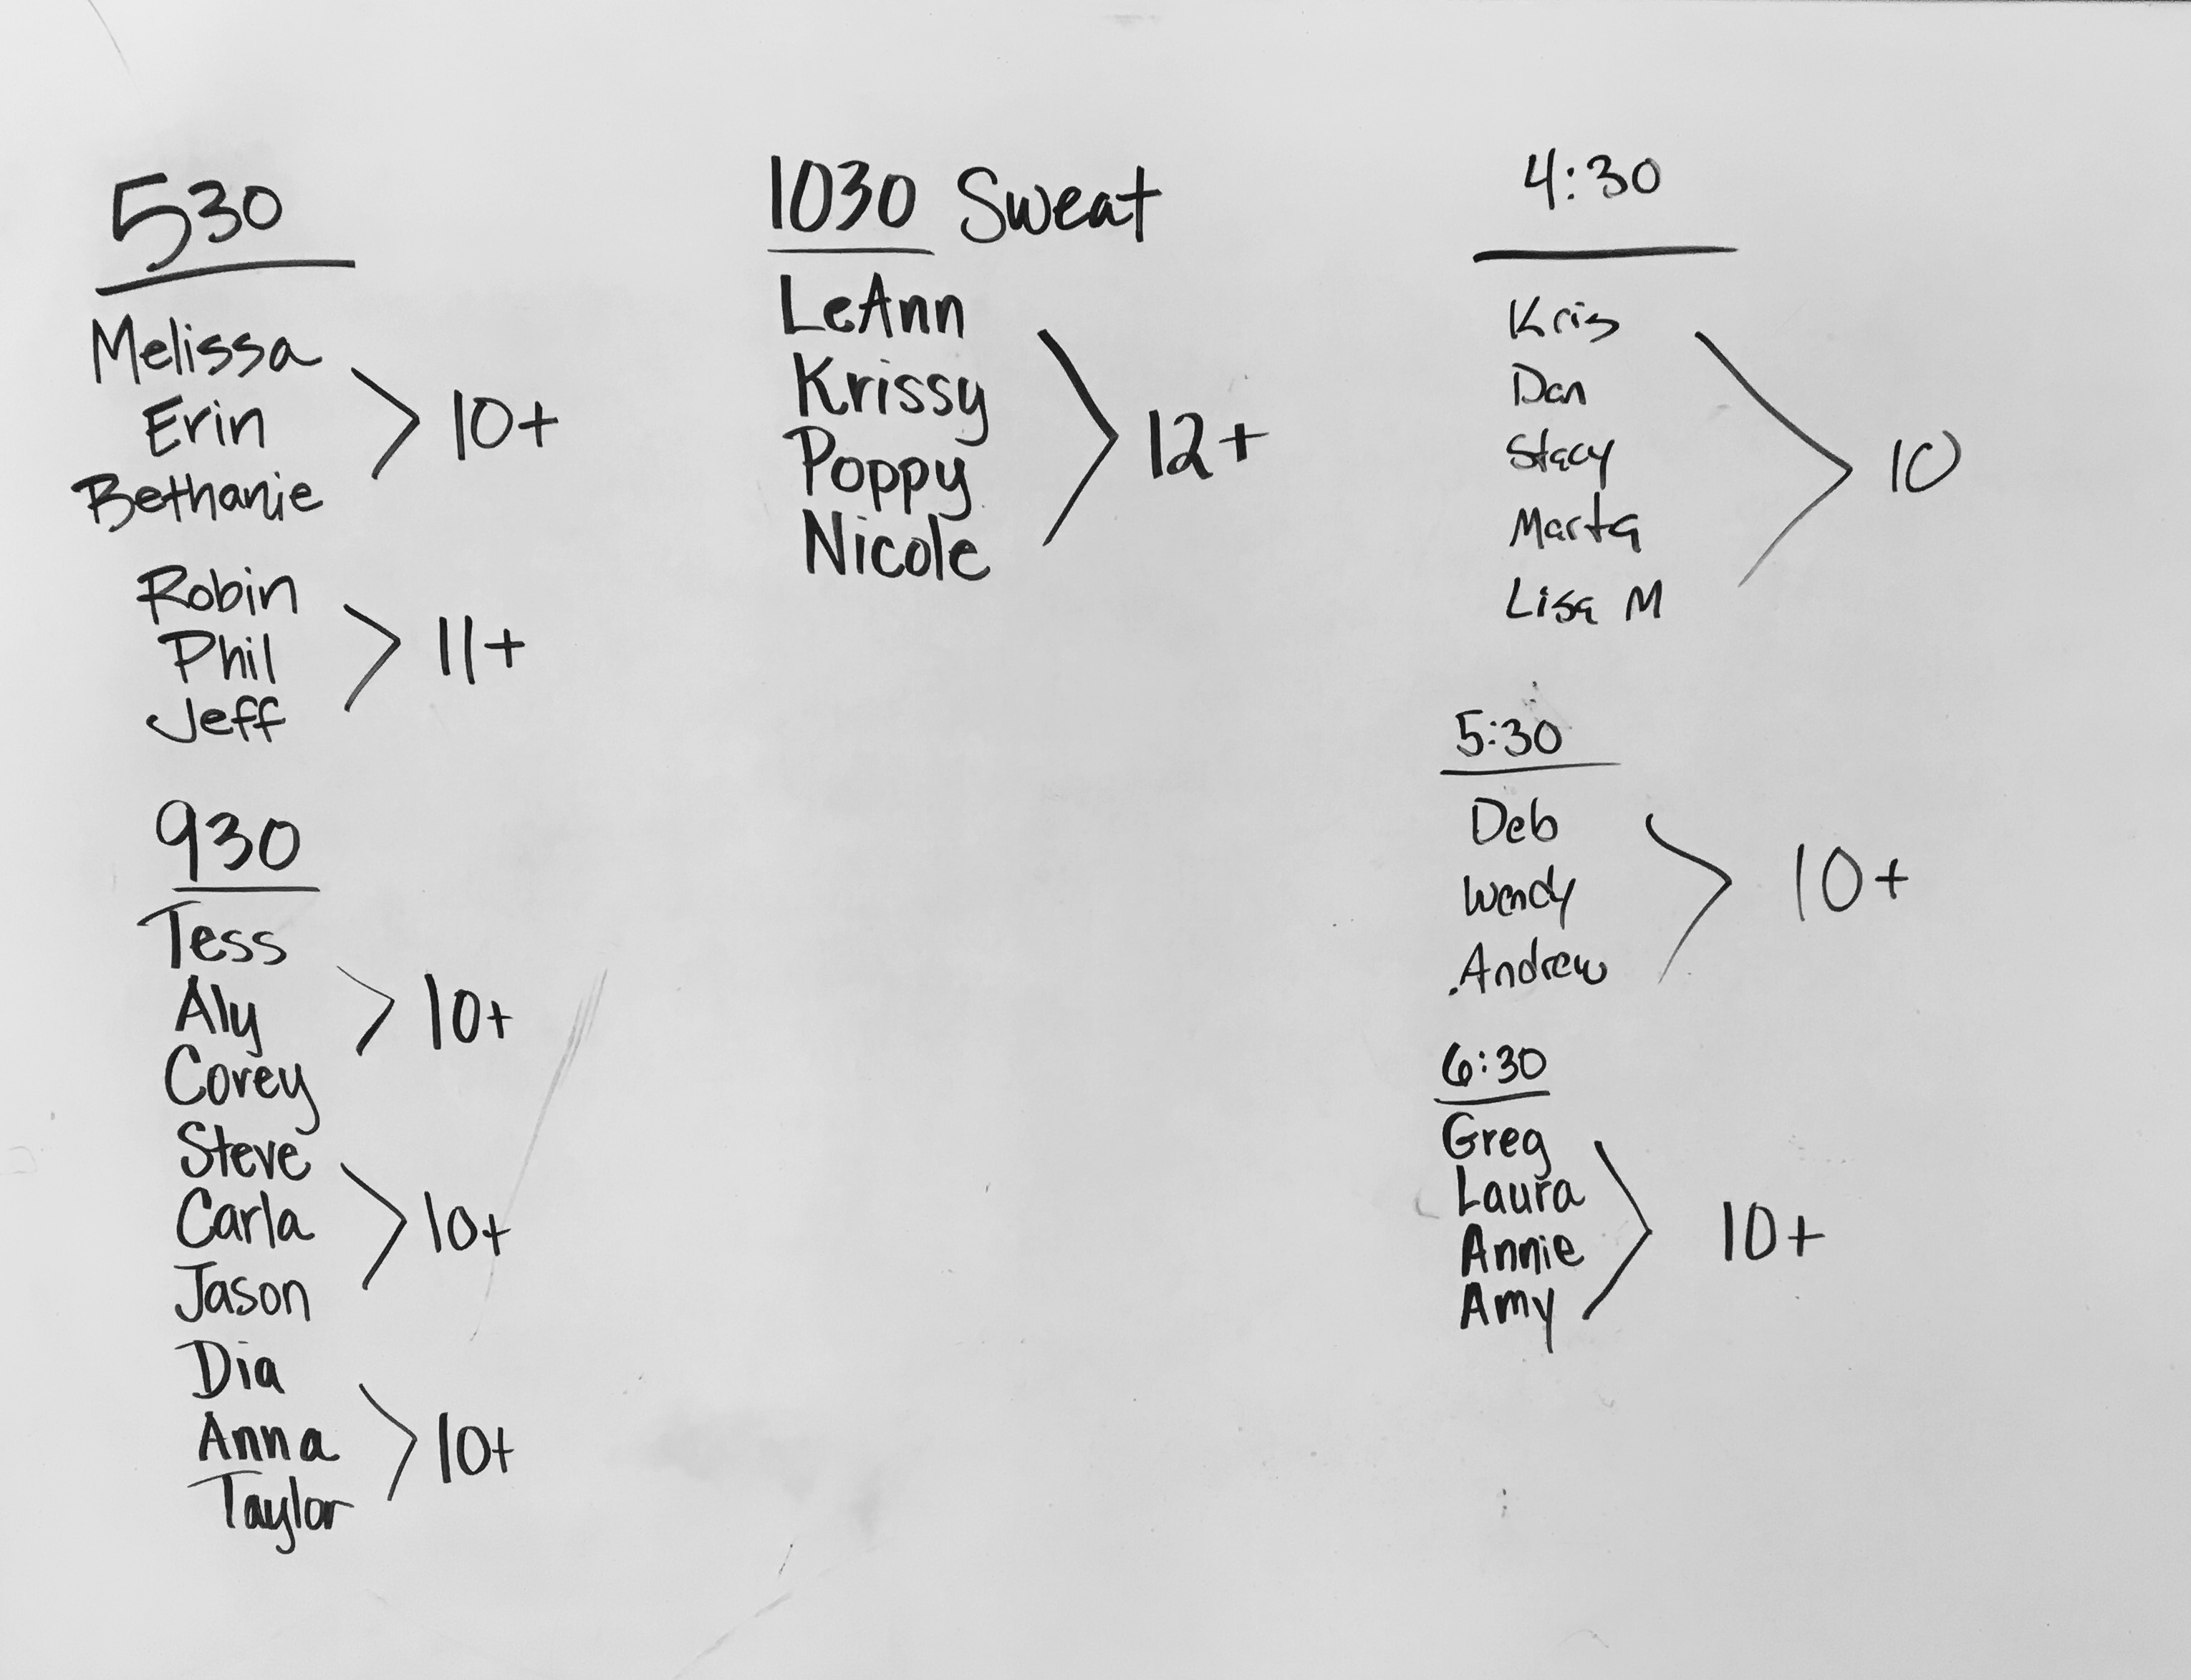 530
Melissa
Erin
Bethanie
> 10+
Robin
Phil
Jeff
> 11+
930
Tess
Aly
Corey
> 10+
Steve
Carla
Jason
> 10+
Dia
Anna
Taylor
> 10+
1030 Sweat
LeAnn
Krissy
Poppy
Nicole
> 12+
4:30
Kris
Dan
Stacy
Marta
Lisa M
> 10
5:30
Deb
Wendy
Andrew
> 10+
6:30
Greg
Laura
Annie
Amy
> 10+